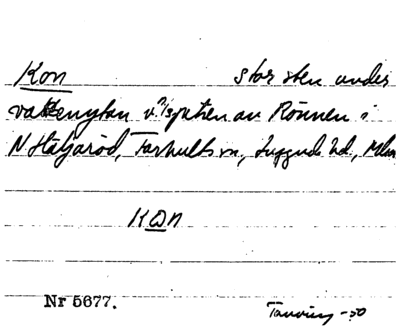 Kon stor sten under
vattenytan v spetsen av Rönnen i
N Häljaröd, Farhults sn, Luggude hd, Mlm
KON
Nr 5677.